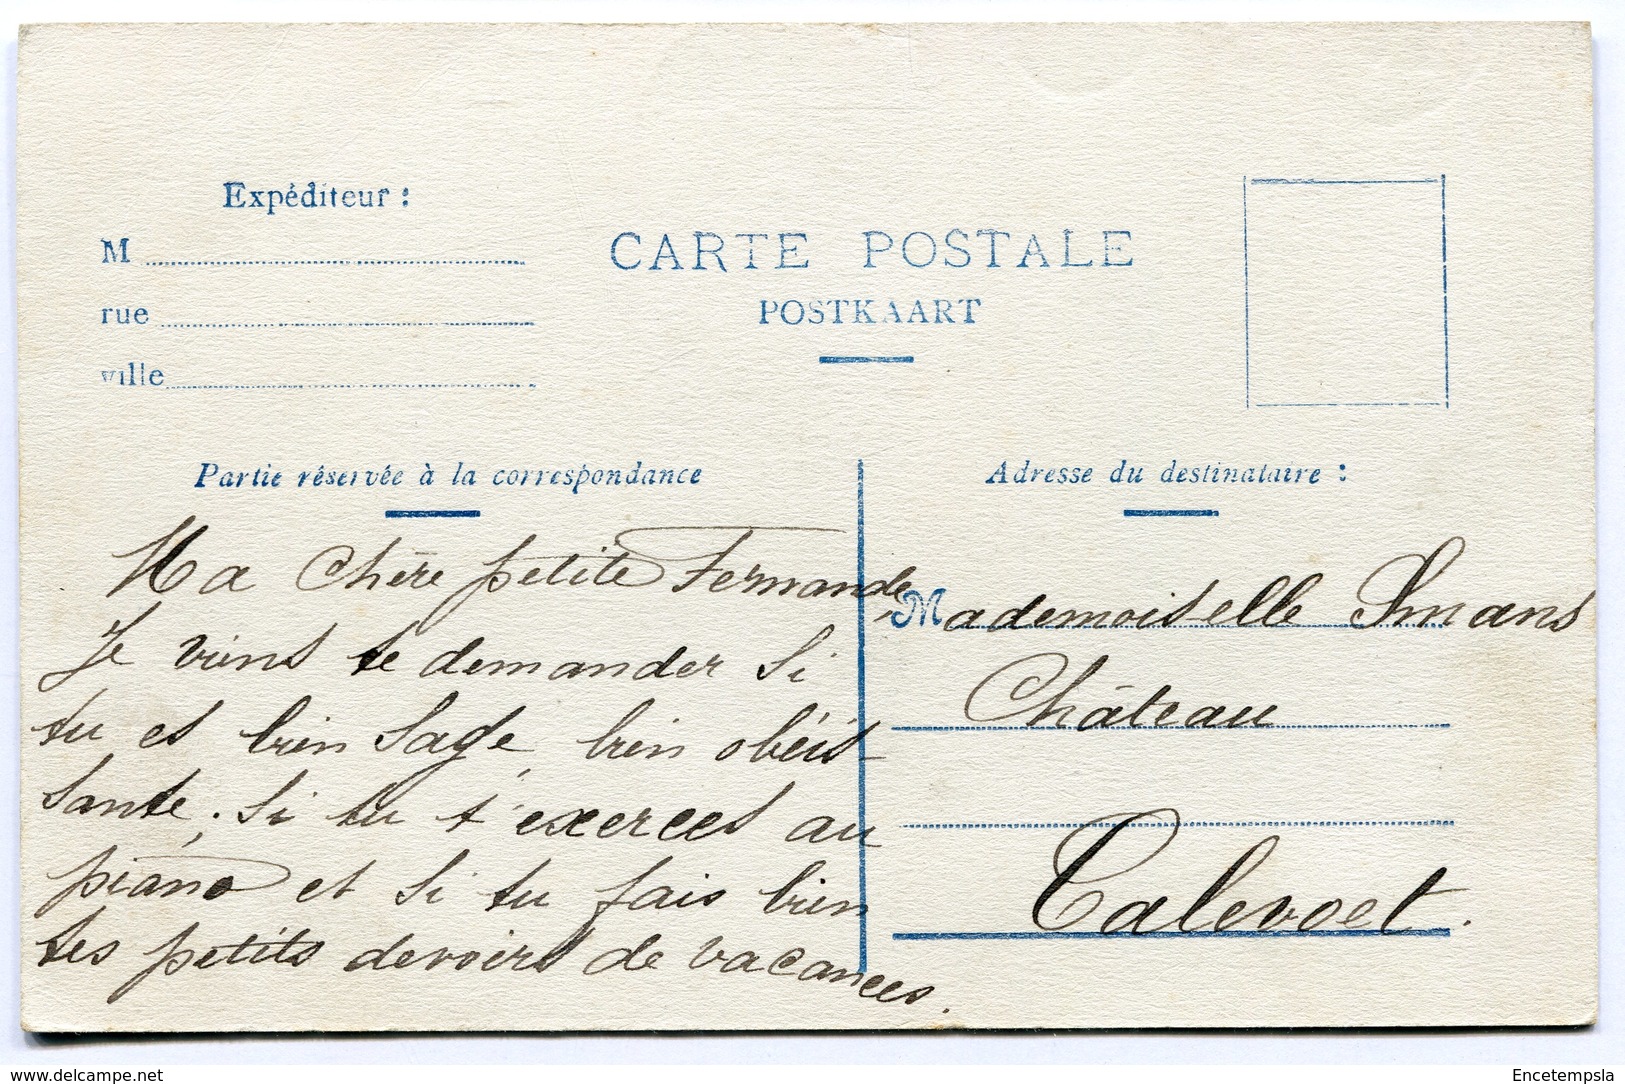 Expéditeur :
M
rue
ville
CARTE POSTALE
POSTKAART
Partie réservée à la correspondance
Ma chère petite Fernande,
Je viens te demander si
tu es bien sage, bien obéis-
sante, si tu t'exerces au
piano et si tu fais bien
tes petits devoirs de vacances.
Adresse du destinataire :
Mademoiselle Smans
Château
Calevoet.
www.delcampe.net
Encetempsla